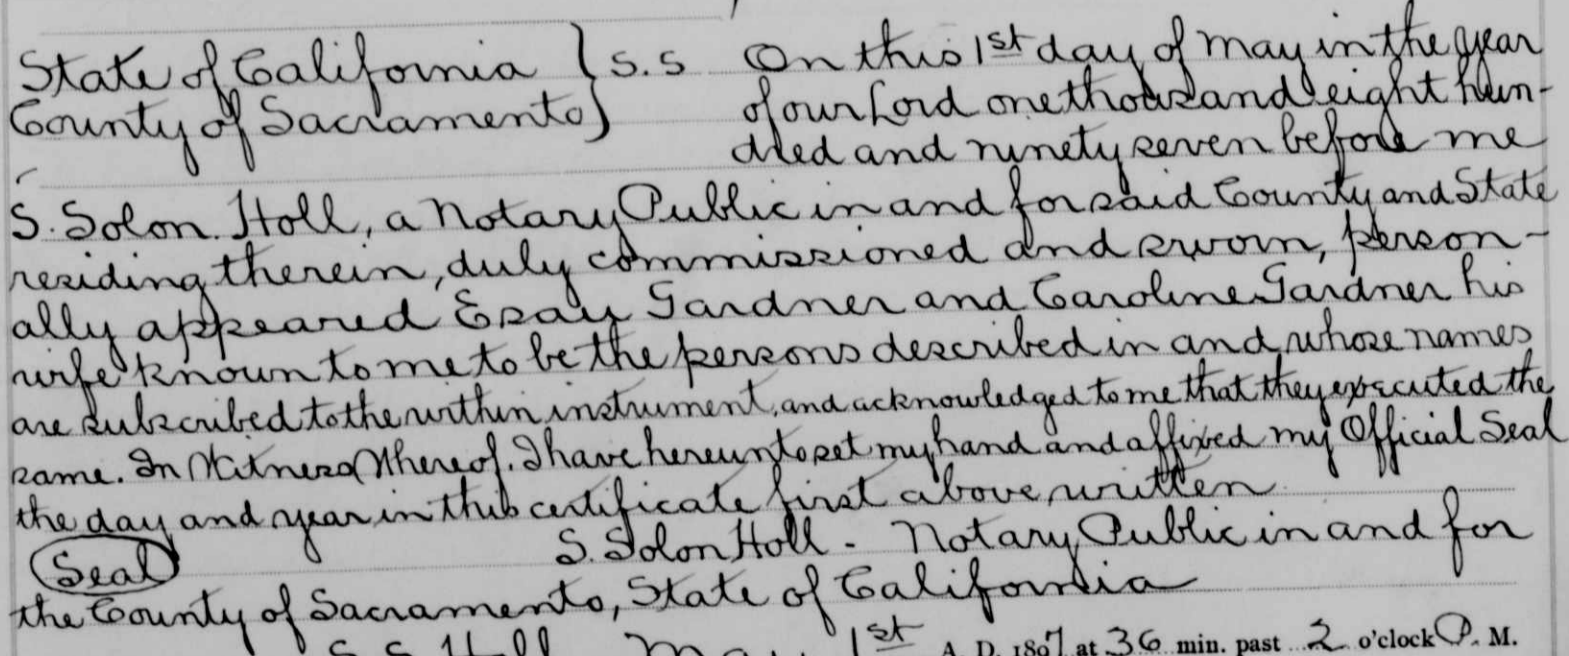 State of California } S.S On this 1st day of May in the year
County of Sacramento } of our Lord one thousand eight hun-
dred and ninety seven before me
S. Solon Holl, a Notary Public in and for said County and State
residing therein, duly commissioned and sworn, person-
ally appeared Esau Gardner and Caroline Gardner his
wife known to me to be the persons described in and whose names
are subscribed to the within instrument, and acknowledged to me that they executed the
same. In Witness Whereof. I have hereunto set my hand and affixed my Official Seal
the day and year in this certificate first above written
Seal S. Solon Holl - Notary Public in and for
the County of Sacramento, State of California
S.S. Holl May 1st A. D. 1897 at 36 min. past 2 o'clock P. M.